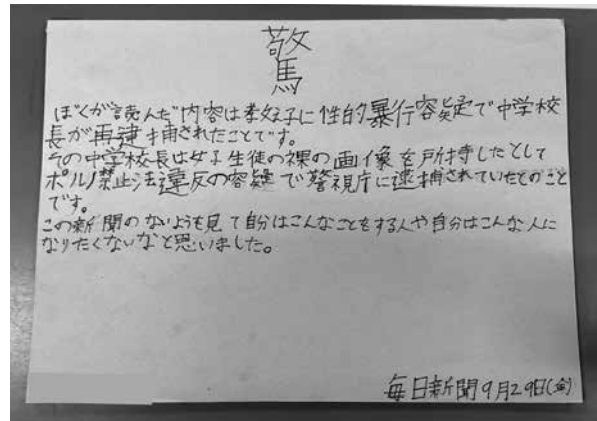 驚
ぼくが読んだ内容は孝女子に性的暴行容疑で中学校
長が再逮捕されたことです。
その中学校長は女子生徒の裸の画像を所持したとして
ポルノ禁止法違反の容疑で警視庁に逮捕されていたとのこと
です。
この新聞のないようを見て自分はこんなことをする人や自分はこんな人に
なりたくないなと思いました。
毎日新聞9月29日(金)